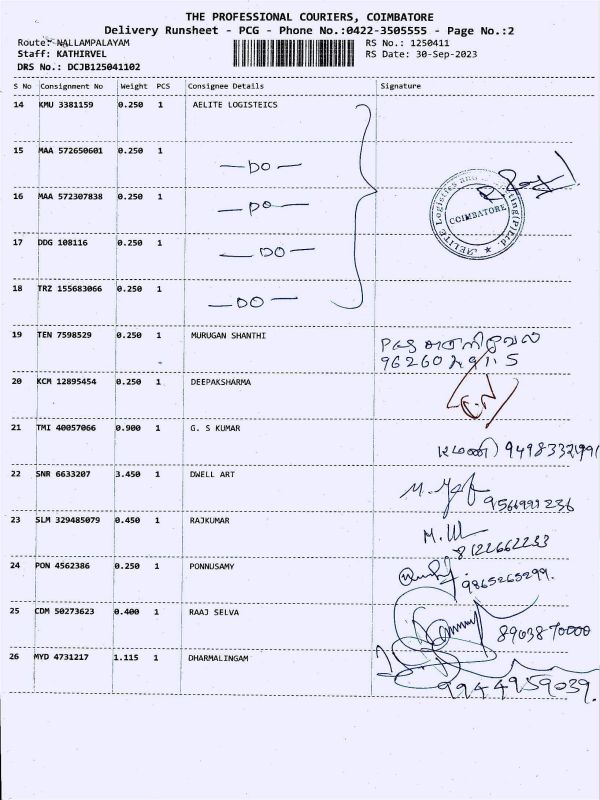 THE PROFESSIONAL COURIERS, COIMBATORE
Delivery Runsheet - PCG - Phone No.:0422-3505555 - Page No.:2
Route: NALLAMPALAYAM RS No.: 1250411
Staff: KATHIRVEL RS Date: 30-Sep-2023
DRS No.: DCJB125041102
S No Consignment No Weight PCS Consignee Details Signature
14 KMU 3381159 0.250 1 AELITE LOGISTEICS
15 MAA 572650601 0.250 1
— DO —
16 MAA 572307838 0.250 1
— DO —
COIMBATORE
17 DDG 108116 0.250 1
— DO —
18 TRZ 155683066 0.250 1
— DO —
19 TEN 7598529 0.250 1 MURUGAN SHANTHI
20 KCM 12895454 0.250 1 DEEPAKSHARMA
21 TMI 40057066 0.900 1 G. S KUMAR
22 SNR 6633207 3.450 1 DWELL ART
23 SLM 329485079 0.450 1 RAJKUMAR
8122662233
24 PON 4562386 0.250 1 PONNUSAMY
9865265299.
25 CDM 50273623 0.400 1 RAAJ SELVA
8903870000
26 MYD 4731217 1.115 1 DHARMALINGAM
9944959039.